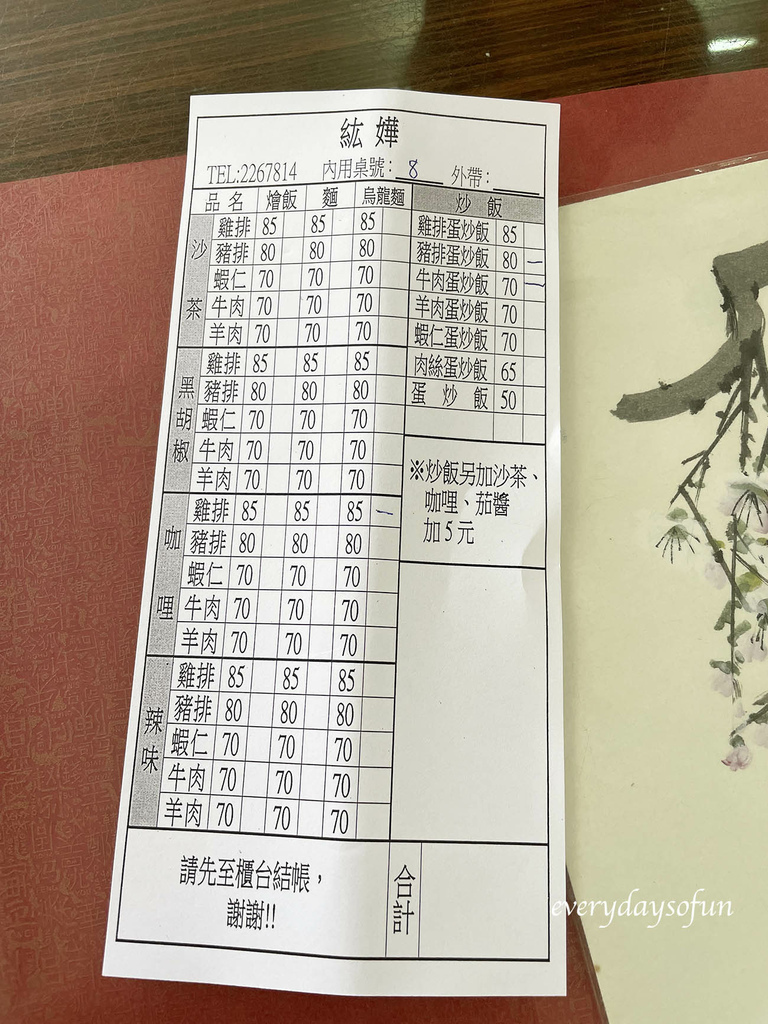 紘 嬅
TEL:2267814 內用桌號：8 外帶：
品名 燴飯 麵 烏龍麵
沙茶
雞排 85 85 85
豬排 80 80 80
蝦仁 70 70 70
牛肉 70 70 70
羊肉 70 70 70
黑胡椒
雞排 85 85 85
豬排 80 80 80
蝦仁 70 70 70
牛肉 70 70 70
羊肉 70 70 70
咖哩
雞排 85 85 85 一
豬排 80 80 80
蝦仁 70 70 70
牛肉 70 70 70
羊肉 70 70 70
辣味
雞排 85 85 85
豬排 80 80 80
蝦仁 70 70 70
牛肉 70 70 70
羊肉 70 70 70
炒飯
雞排蛋炒飯 85
豬排蛋炒飯 80 一
牛肉蛋炒飯 70 一
羊肉蛋炒飯 70
蝦仁蛋炒飯 70
肉絲蛋炒飯 65
蛋炒飯 50
※炒飯另加沙茶、
咖哩、茄醬
加5元
請先至櫃台結帳，
謝謝!!
合計
everydaysofun